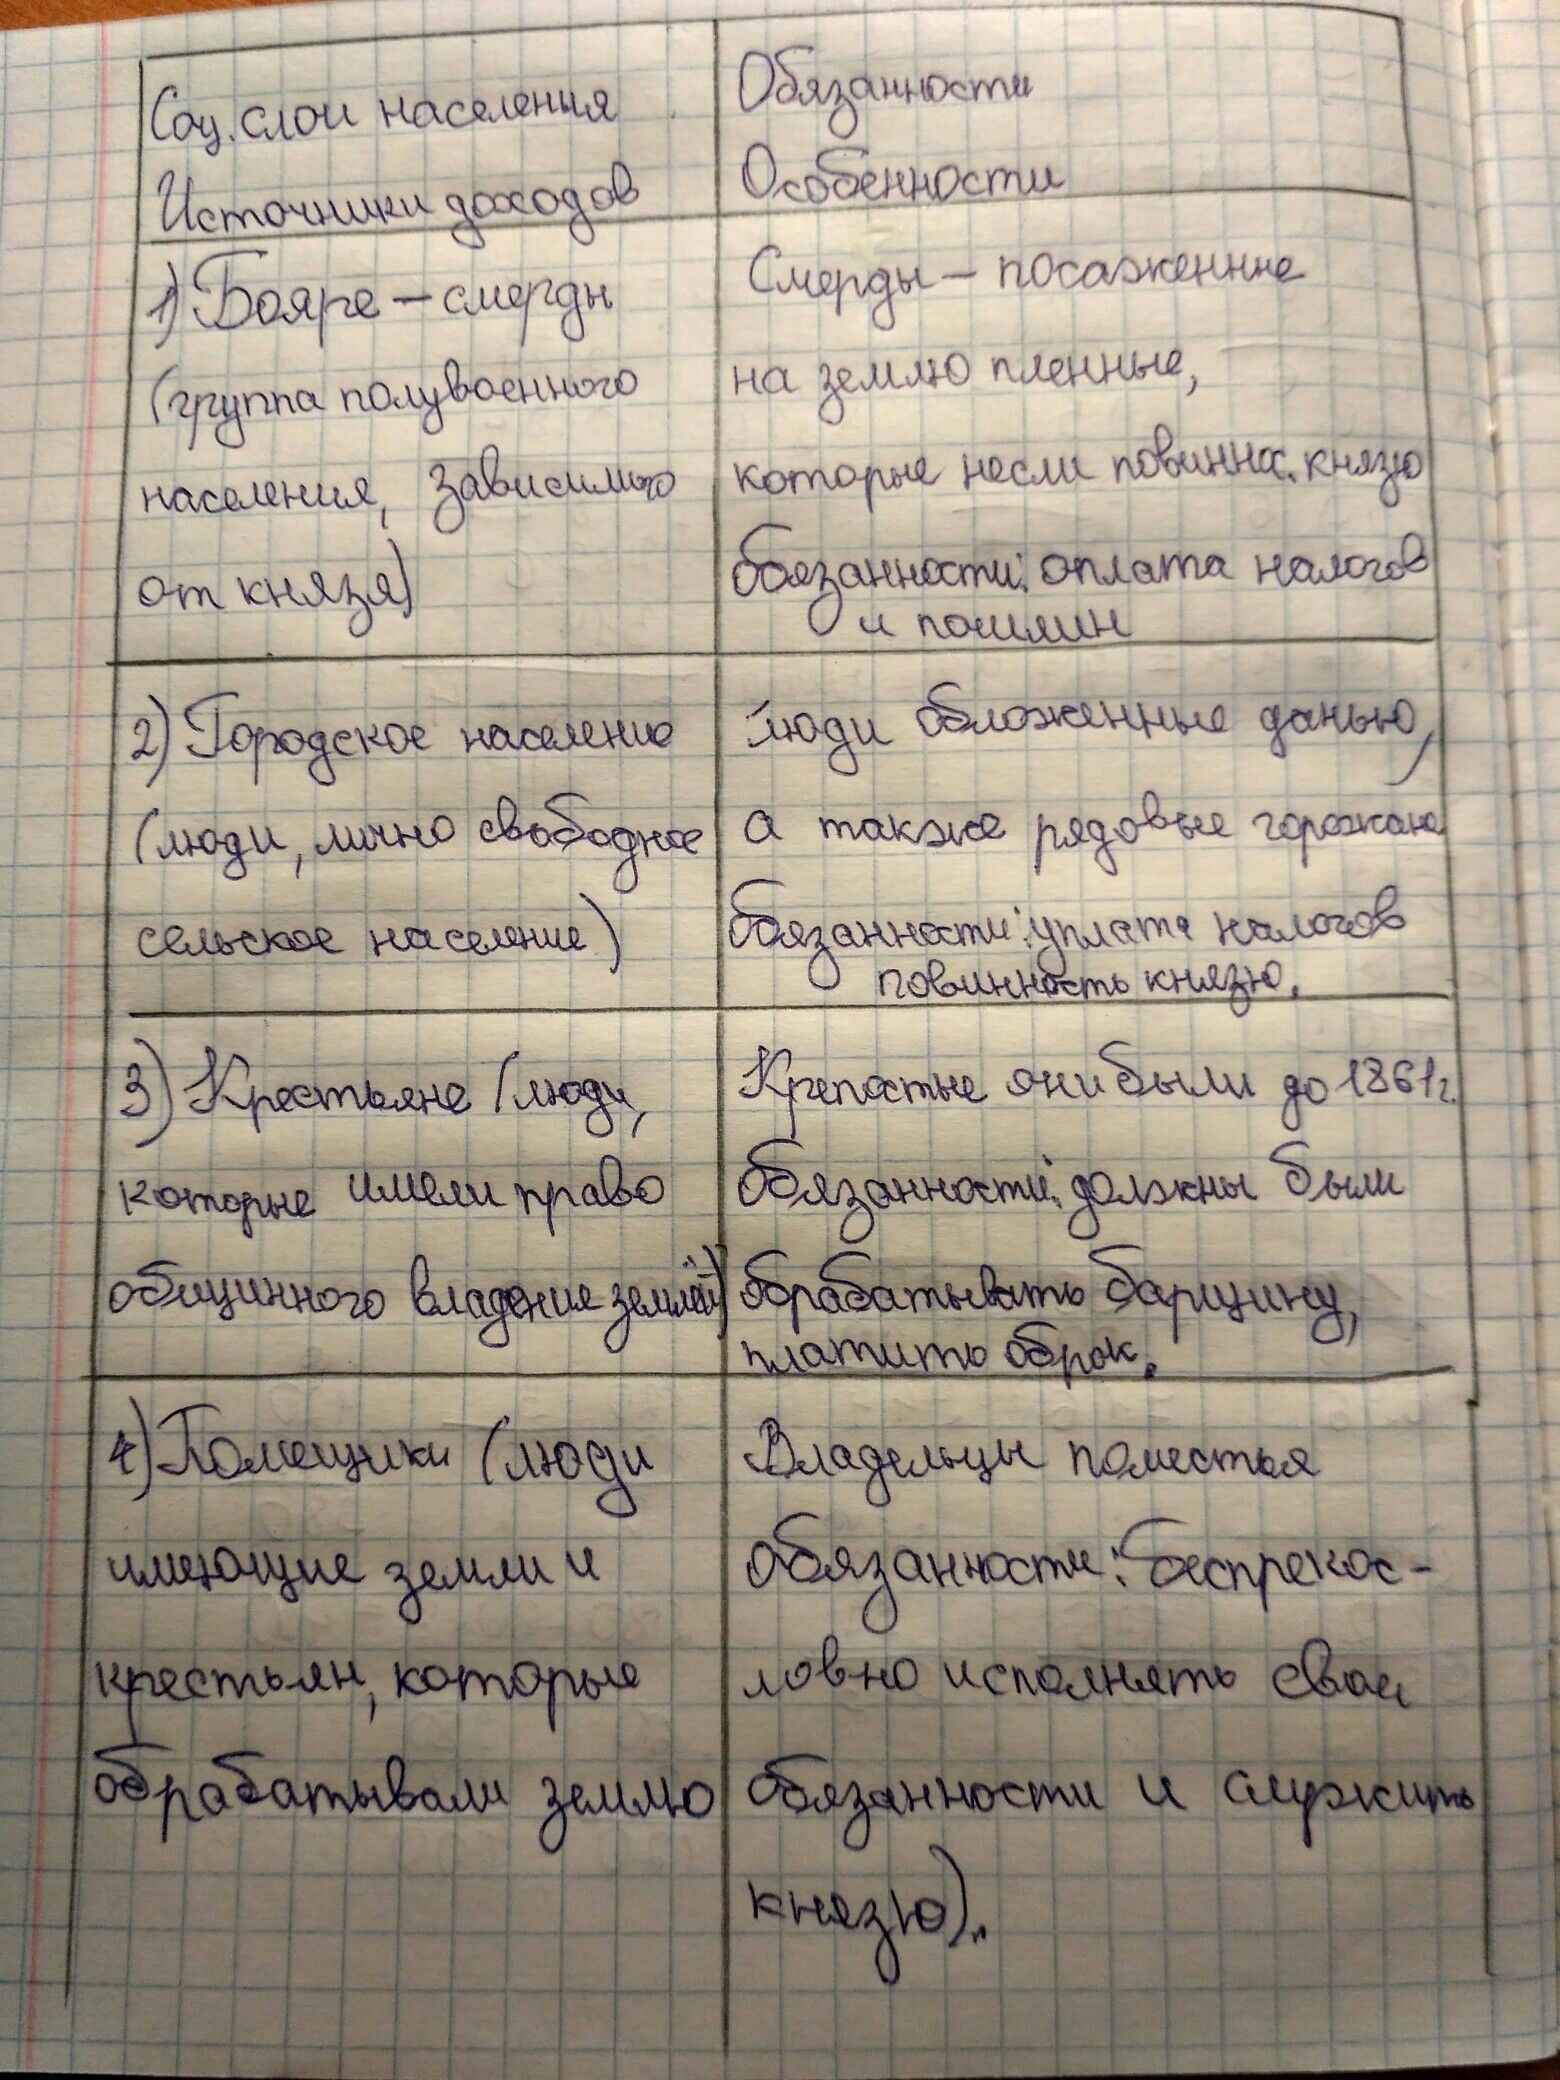 Соц. слои населения
Источники доходов
Обязанности
Особенности
1) Бояре – смерды
(группа полувоенного
населения, зависимого
от князя)
Смерды – посаженные
на землю пленные,
которые несли повиннос. князю
обязанности: оплата налогов
и пошлин
2) Городское население
(люди, лично свободное
сельское население)
люди обложенные данью,
а также рядовые горожане
обязанности: уплата налогов
повинность князю.
3) Крестьяне (люди,
которые имели право
общинного владения землёй)
Крепостные они были до 1861г.
обязанности: должны были
обрабатывать барщину,
платить оброк.
4) Помещики (люди
имеющие земли и
крестьян, которые
обрабатывали землю
Владельцы поместья
обязанности: беспрекос-
ловно исполнять свои
обязанности и служить
князю).